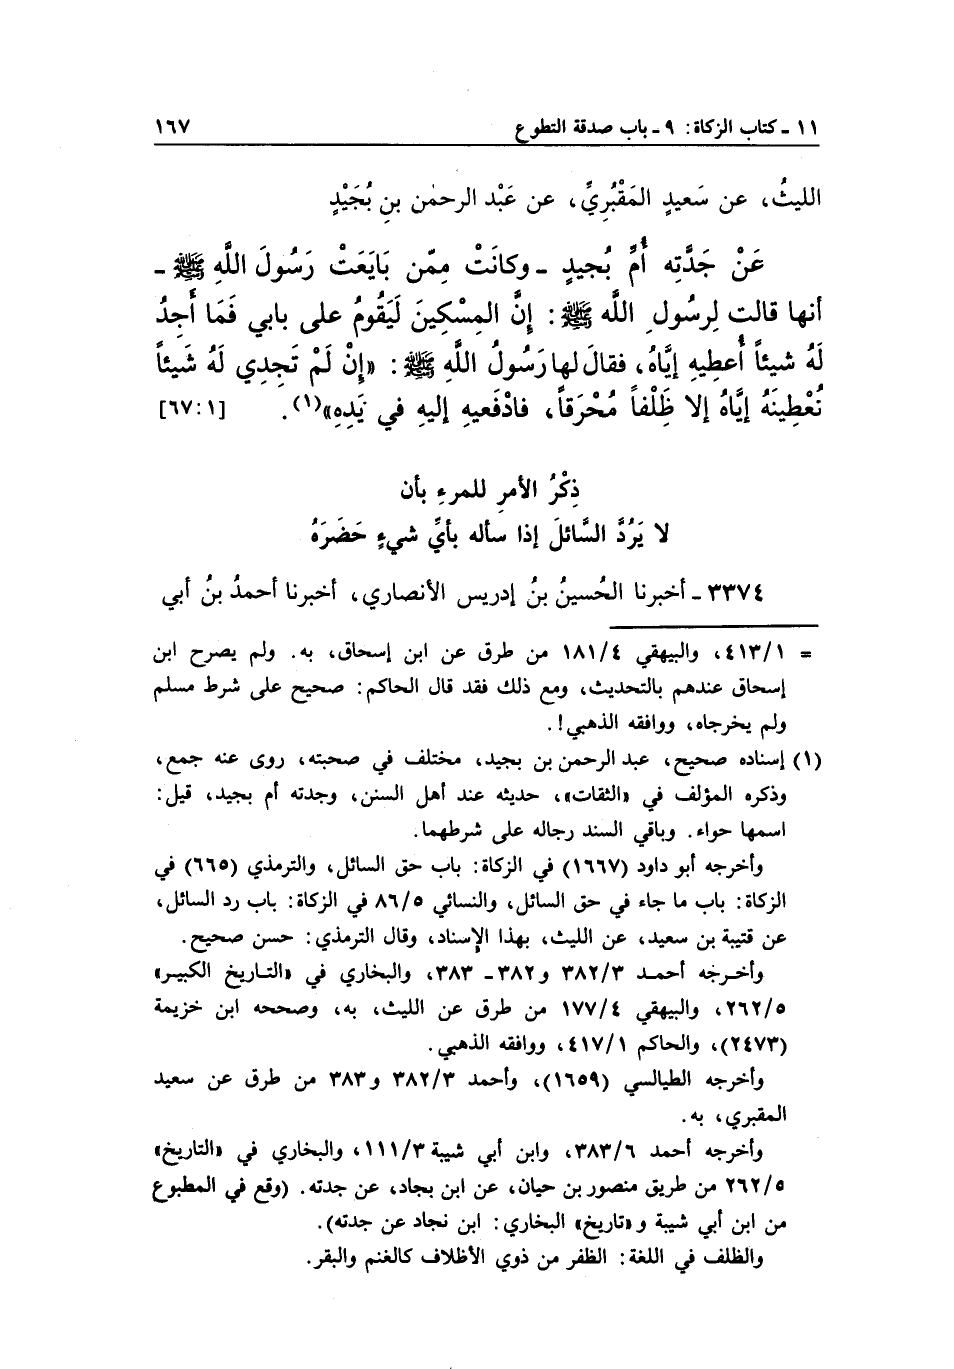 ١١ - كتاب الزكاة: ٩ - باب صدقة التطوع ١٦٧
الليثُ، عن سَعيدٍ المَقْبُريِّ، عن عَبْد الرحمٰن بنِ بُجَيْدٍ
عَنْ جَدَّتِه أُمِّ بُجيدٍ - وكانَتْ مِمّن بَايَعَتْ رَسُولَ اللَّهِ ﷺ -
أنها قالت لِرسُولِ اللَّه ﷺ: إِنَّ المِسْكِينَ لَيَقُومُ على بابي فَمَا أَجِدُ
لَهُ شيئاً أُعطِيه إيَّاهُ، فقالَ لها رَسُولُ اللَّهِ ﷺ: «إِنْ لَمْ تَجِدِي لَهُ شَيئاً
تُعْطِينَهُ إيَّاهُ إلا ظِلْفاً مُحْرَقاً، فادْفَعيهِ إليهِ في يَدِهِ»(١). [١:٦٧]
ذِكْرُ الأمرِ للمرءِ بأن
لا يَرُدَّ السَّائلَ إذا سأله بأيِّ شيءٍ حَضَرَهُ
٣٣٧٤ - أخبرنا الحُسينُ بنُ إدريس الأنصاري، أخبرنا أحمدُ بنُ أبي
= ٤١٣/١، والبيهقي ١٨١/٤ من طرق عن ابن إسحاق، به. ولم يصرح ابن
إسحاق عندهم بالتحديث، ومع ذلك فقد قال الحاكم: صحيح على شرط مسلم
ولم يخرجاه، ووافقه الذهبي!.
(١) إسناده صحيح، عبد الرحمن بن بجيد، مختلف في صحبته، روى عنه جمع،
وذكره المؤلف في «الثقات»، حديثه عند أهل السنن، وجدته أم بجيد، قيل:
اسمها حواء. وباقي السند رجاله على شرطهما.
وأخرجه أبو داود (١٦٦٧) في الزكاة: باب حق السائل، والترمذي (٦٦٥) في
الزكاة: باب ما جاء في حق السائل، والنسائي ٨٦/٥ في الزكاة: باب رد السائل،
عن قتيبة بن سعيد، عن الليث، بهذا الإسناد، وقال الترمذي: حسن صحيح.
وأخرجه أحمد ٣٨٢/٣ و٣٨٢- ٣٨٣، والبخاري في «التاريخ الكبير»
٢٦٢/٥، والبيهقي ١٧٧/٤ من طرق عن الليث، به، وصححه ابن خزيمة
(٢٤٧٣)، والحاكم ٤١٧/١، ووافقه الذهبي.
وأخرجه الطيالسي (١٦٥٩)، وأحمد ٣٨٢/٣ و٣٨٣ من طرق عن سعيد
المقبري، به.
وأخرجه أحمد ٣٨٣/٦، وابن أبي شيبة ١١١/٣، والبخاري في «التاريخ»
٢٦٢/٥ من طريق منصور بن حيان، عن ابن بجاد، عن جدته. (وقع في المطبوع
من ابن أبي شيبة و«تاريخ» البخاري: ابن نجاد عن جدته).
والظلف في اللغة: الظفر من ذوي الأظلاف كالغنم والبقر.